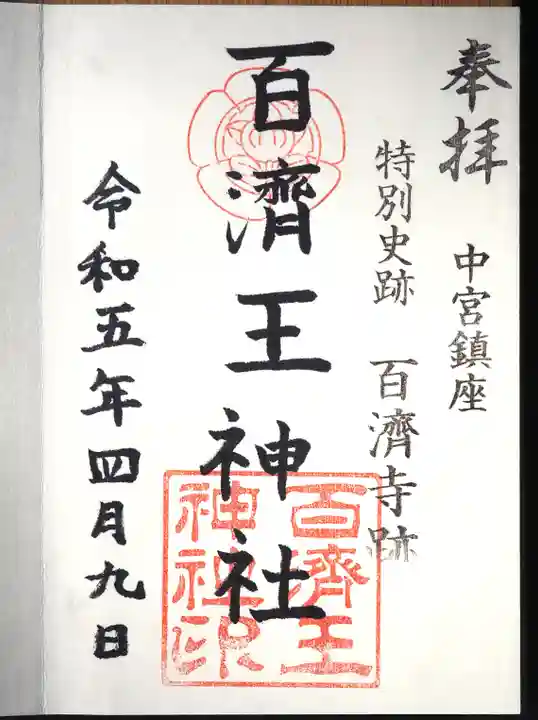 奉拝
中宮鎮座
特別史跡 百濟寺跡
百濟王神社
百濟王
神社印
令和五年四月九日